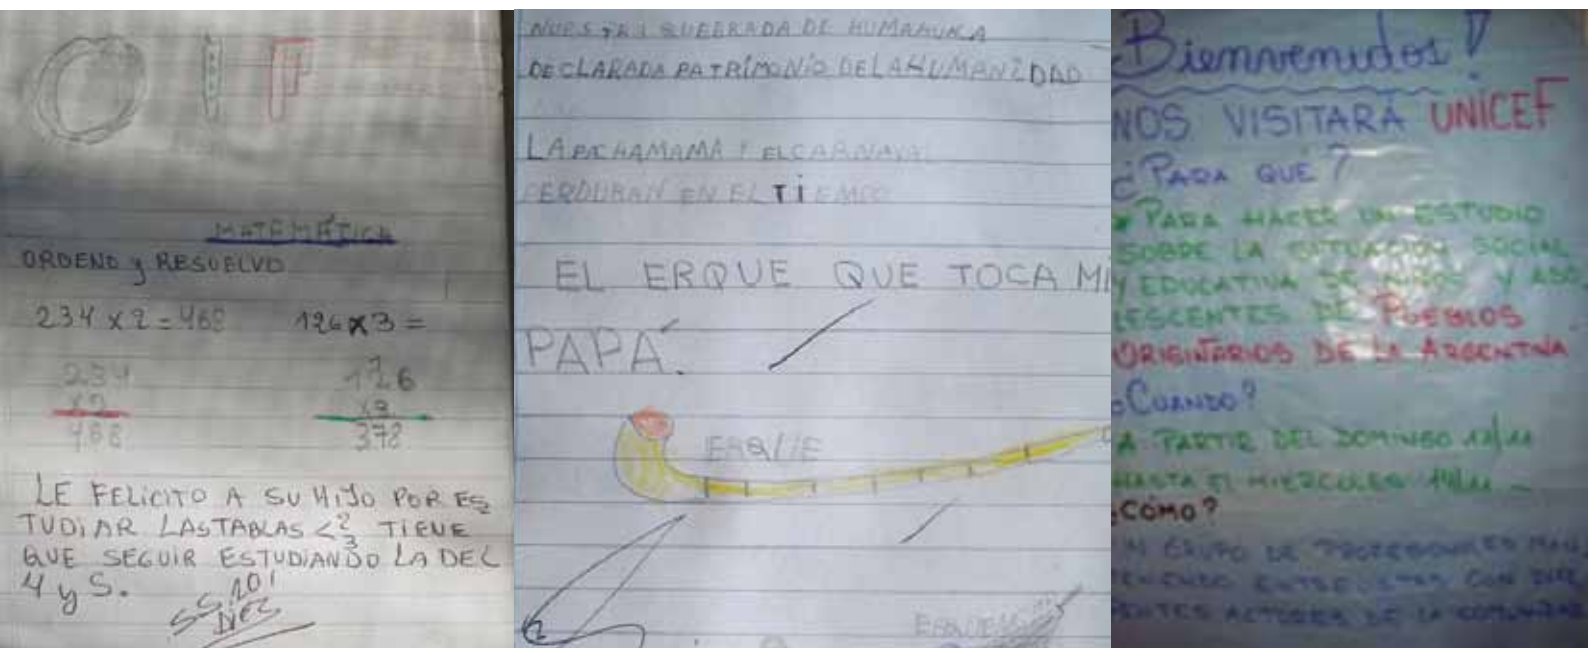 MATEMÁTICA
ORDENO y RESUELVO
234 x 2 = 468 126 x 3 =
234
x2
468
126
x3
378
LE FELICITO A SU HIJO POR ES
TUDIAR LAS TABLAS < 2 3 TIENE
QUE SEGUIR ESTUDIANDO LA DEL
4 y 5.
10!
DIEZ
NUESTRA QUEBRADA DE HUMAHUKA
DECLARADA PATRIMONIO DE LA HUMANIDAD
LA PACHAMAMA Y EL CARNAVAL
PERDURAN EN EL TIEMPO
EL ERQUE QUE TOCA MI
PAPÁ.
ERQUE
Bienvenidos!
NOS VISITARÁ UNICEF
¿PARA QUÉ?
PARA HACER UN ESTUDIO
SOBRE LA SITUACIÓN SOCIAL
Y EDUCATIVA DE NIÑOS Y ADO
LESCENTES DE PUEBLOS
ORIGINARIOS DE LA ARGENTINA
¿CUANDO?
A PARTIR DEL DOMINGO
HASTA EL MIERCOLES
¿CÓMO?
UN GRUPO DE PROFESIONALES MAN
TENIENDO ENTREVISTAS CON DIFE
RENTES ACTORES DE LA COMUNIDAD